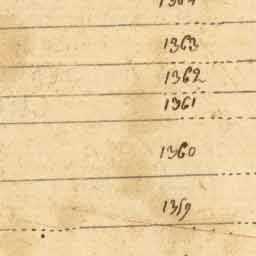 1363
1362
1361
1360
1359